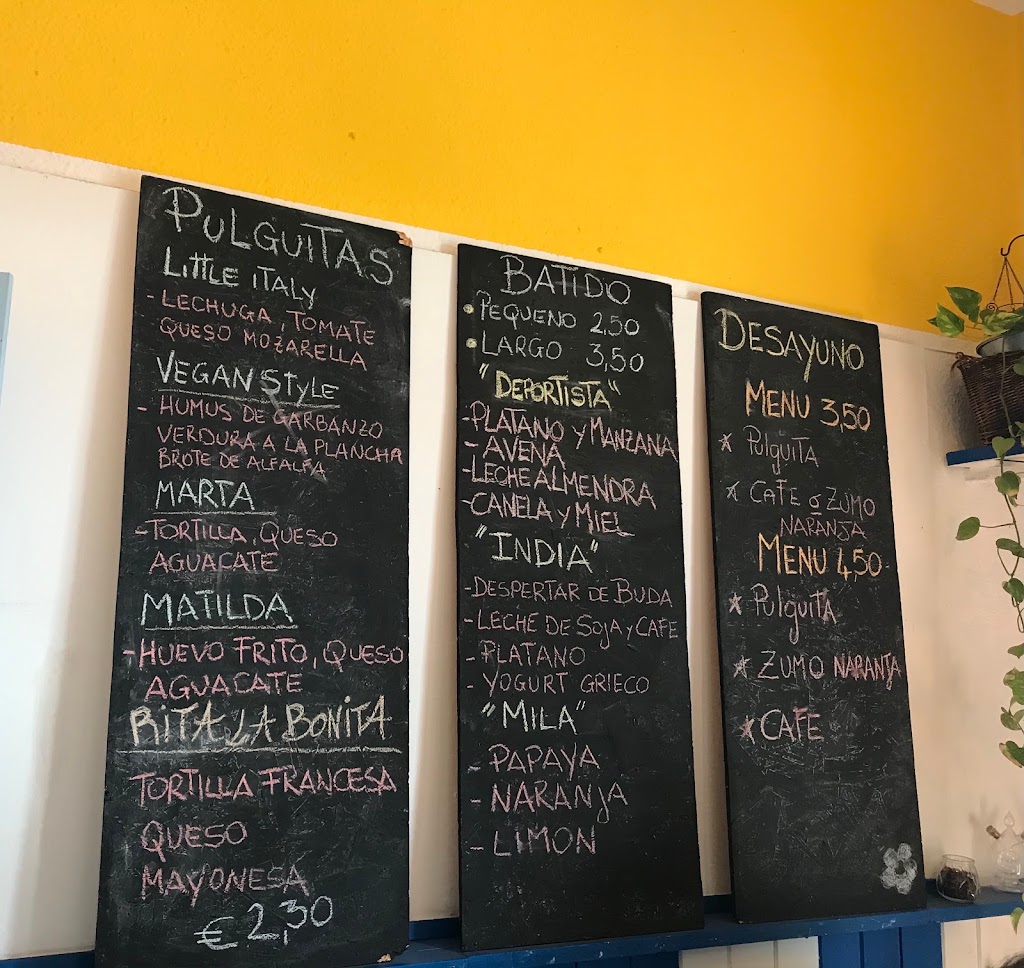 PULGUITAS
LITTLE ITALY
- LECHUGA, TOMATE
QUESO MOZARELLA
VEGAN STYLE
- HUMUS DE GARBANZO
VERDURA A LA PLANCHA
BROTE DE ALFALFA
MARTA
- TORTILLA, QUESO
AGUACATE
MATILDA
- HUEVO FRITO, QUESO
AGUACATE
RITA LA BONITA
TORTILLA FRANCESA
QUESO
MAYONESA
€ 2,30
BATIDO
PEQUENO 2,50
LARGO 3,50
"DEPORTISTA"
- PLATANO Y MANZANA
- AVENA
- LECHE ALMENDRA
- CANELA Y MIEL
"INDIA"
- DESPERTAR DE BUDA
- LECHE DE SOJA Y CAFE
- PLATANO
- YOGURT GRIECO
"MILA"
- PAPAYA
- NARANJA
- LIMON
DESAYUNO
MENU 3,50
* PULGUITA
* CAFE O ZUMO
NARANJA
MENU 4,50
* PULGUITA
* ZUMO NARANJA
* CAFE